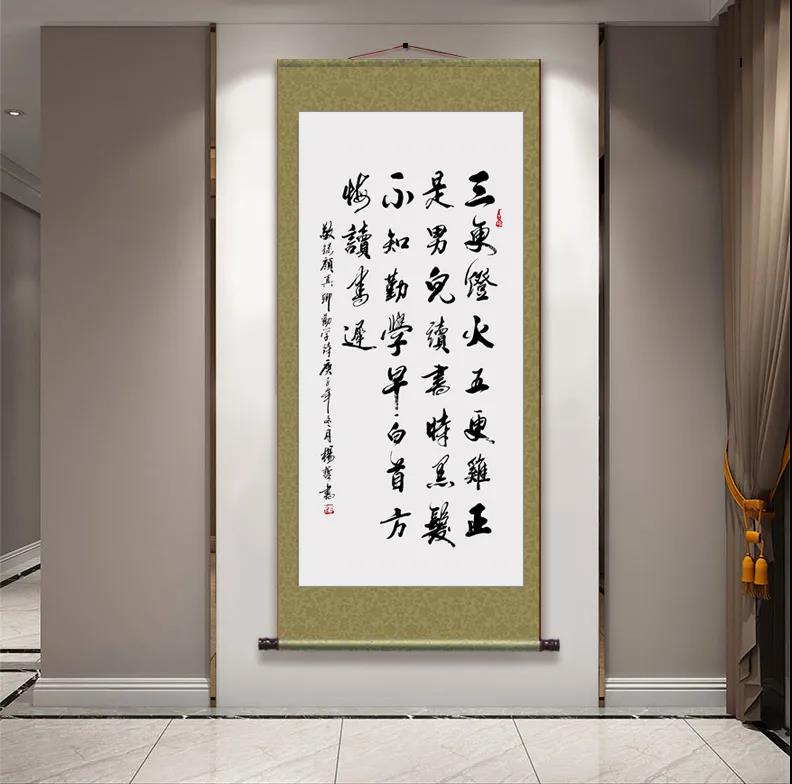 三更燈火五更雞正
是男兒讀書時黑髮
不知勤學早白首方
悔讀書遲
敬録顏真卿勸学詩庚子年冬月楊哲書